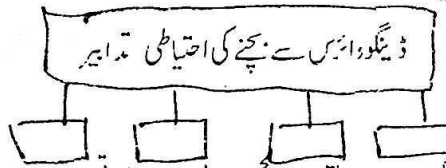 ڈینگو وائرس سے بچنے کی احتیاطی تدابیر